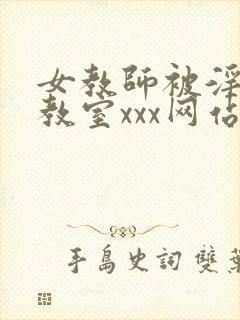 女教師被淫
教室xxx网佔
手島史詞 雙葉